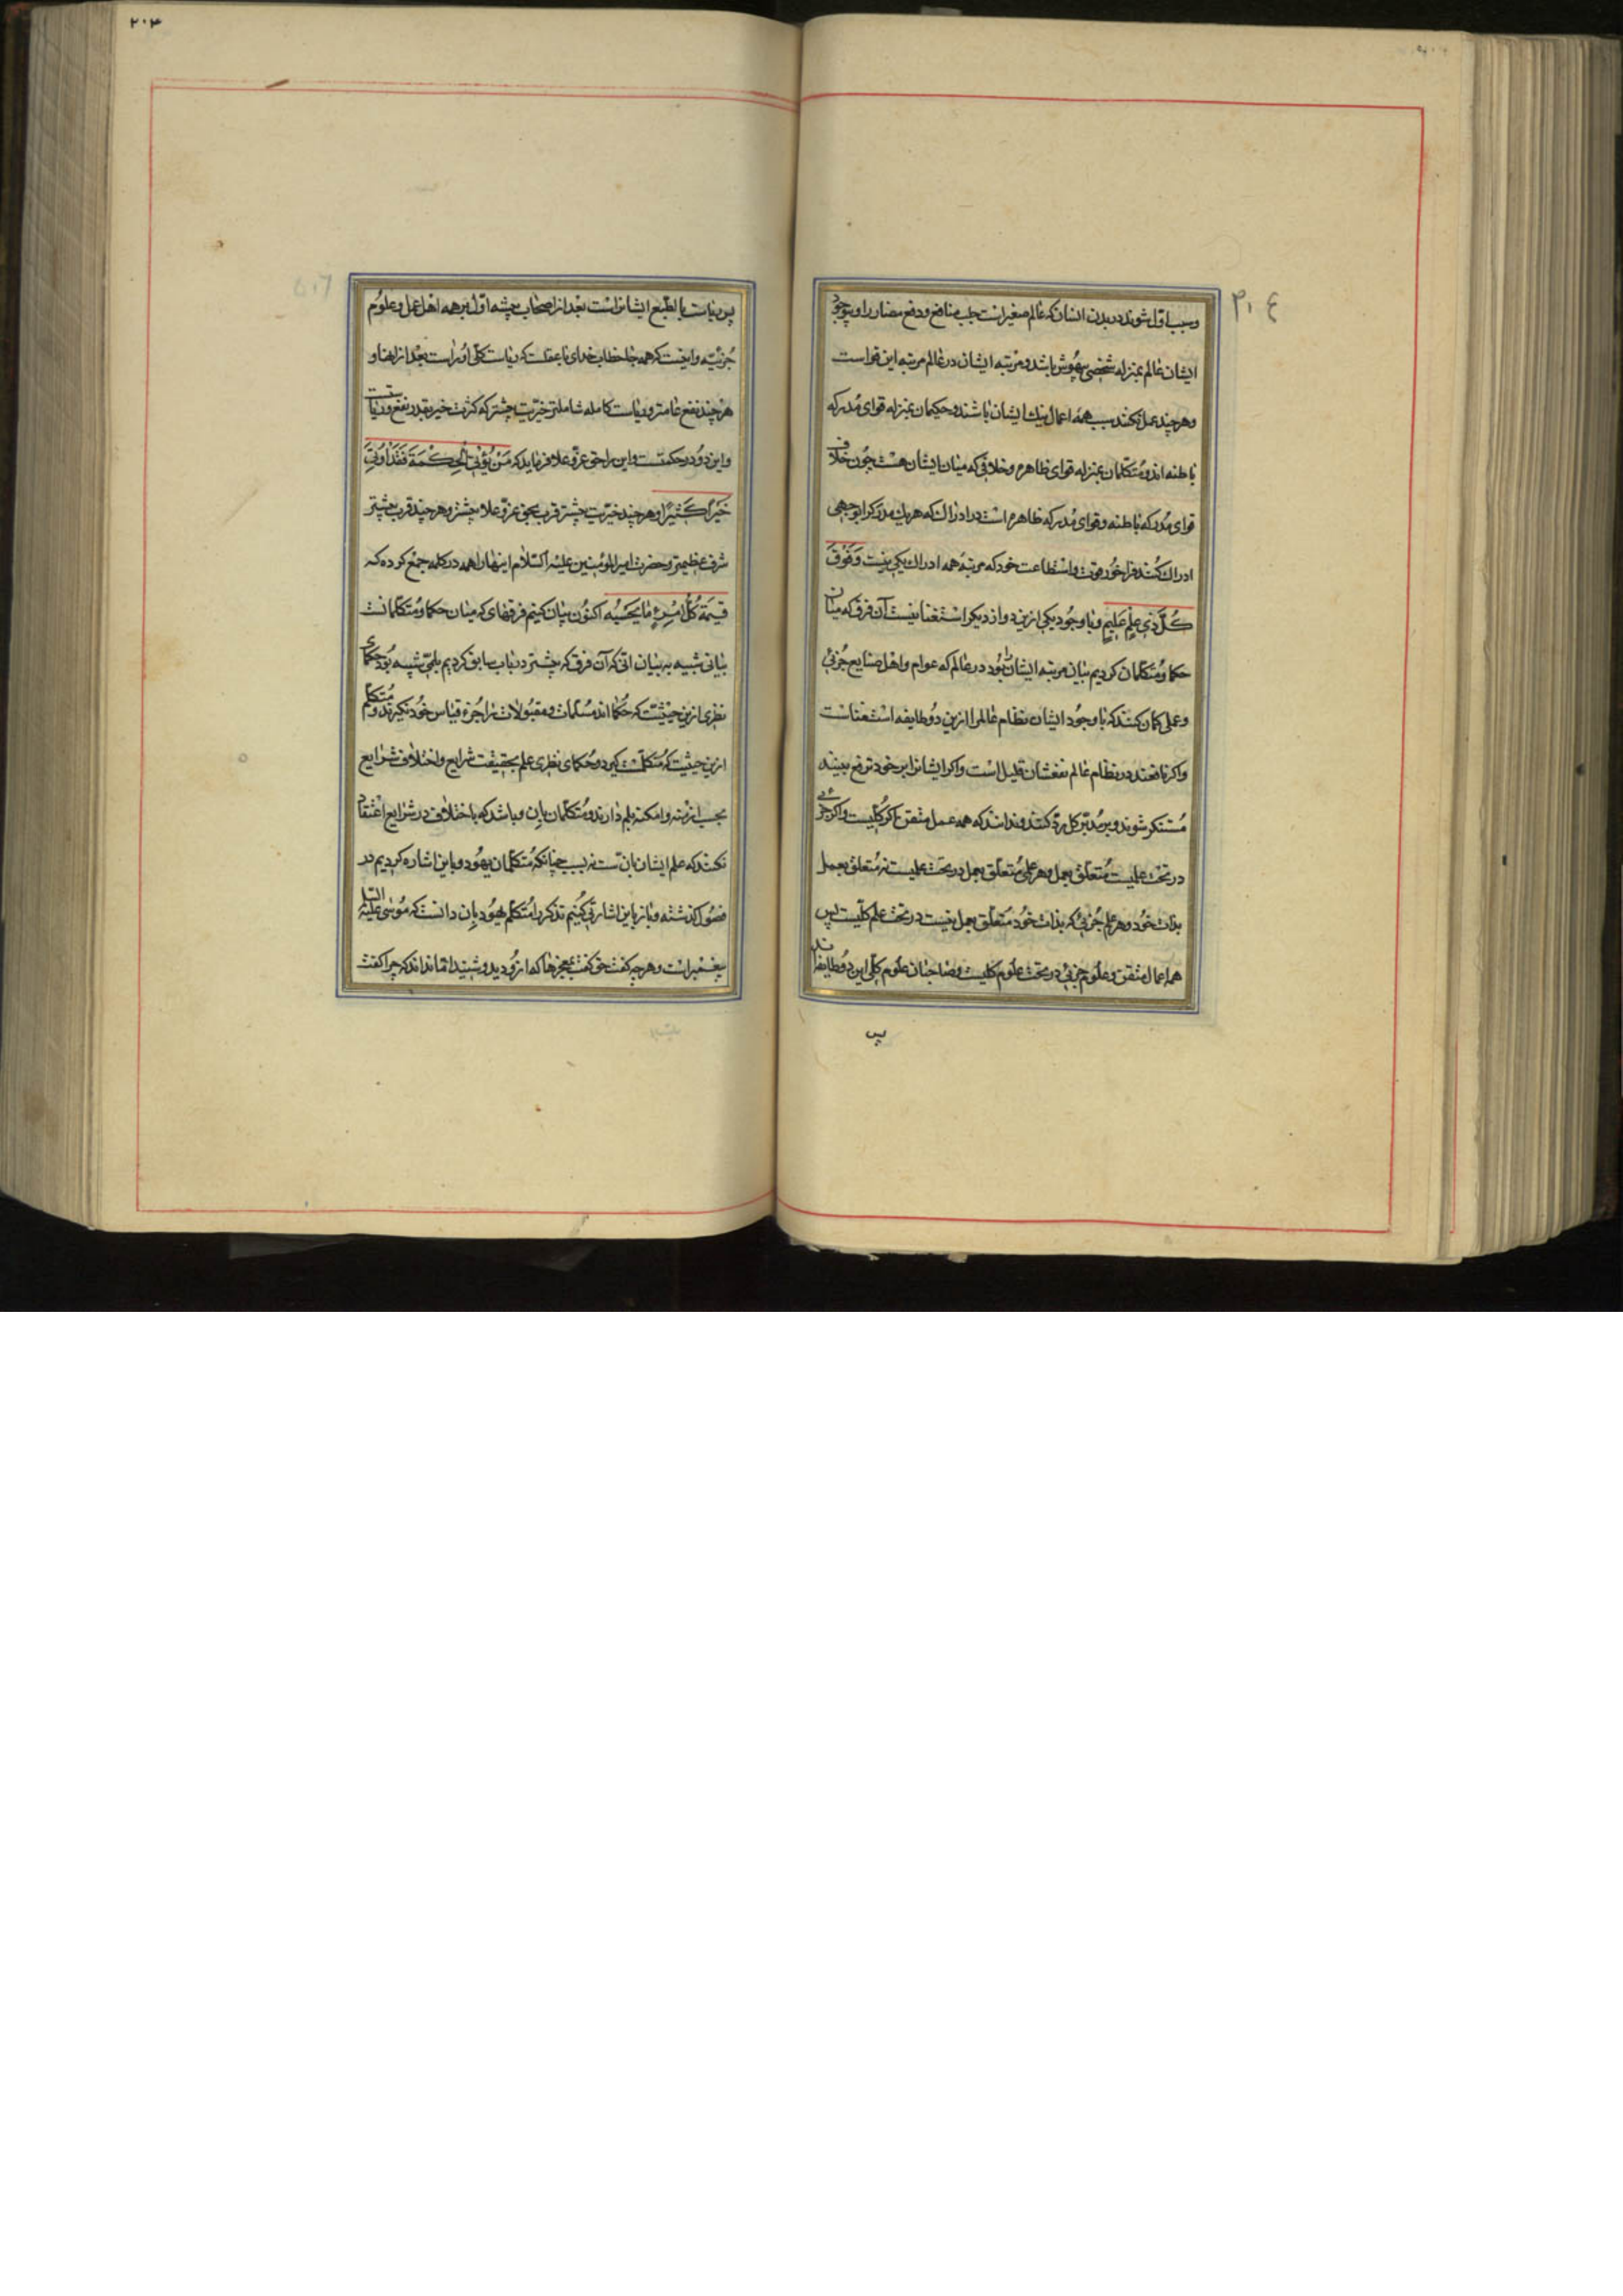 ۲۰۴
وسبب اول شوند در بدن انسان که عالم صغیر است جلب منافع ودفع مضار را وبوجود
ایشان عالم بمنزله شخصی بیهوش باشد ومرتبه ایشان در عالم مرتبه این قواست
وهرچند عمل نکنند سبب همه اعمال نیک ایشان باشند وحکیمان بمنزله قوای مدرکه
باطنه اند ومتکلمان بمنزله قوای ظاهره وخلافی که میان ایشان هست چون خلاف
قوای مدرکه باطنه وقوای مدرکه ظاهره است در ادراک که هر یک مدرک را بوجهی
ادراک کنند فراخور قوت واستطاعت خود که مرتبه همه ادراک یکی نیست وَفَوْقَ
كُلِّ ذي عِلْمٍ عَليمٍ وبا وجود یکی ازین دو از دیکر استغنا نیست آن فرق که میان
حکما ومتکلمان کردیم بیان مرتبه ایشان بود در عالم که عوام واهل صنایع جزئی
وعملی کمان کنند که با وجود ایشان نظام عالم را ازین دو طایفه استغناست
واکر نافعند در نظام عالم نفعشان قلیل است واکر ایشانرا بر خود ترفع بینند
مستنکر شوند وبر مدبر کل رد کنند وندانند که همه عمل متقن اکر کلیست واکر جزئی
در تحت علمیست متعلق بعمل وهر علمی متعلق بعمل در تحت علمیست نه متعلق بعمل
بذات خود وهر علم جزئی که بذات خود متعلق بعمل نیست در تحت علم کلیست پس
همه اعمال متقن وعلوم جزئی در تحت علوم کلیست وصاحبان علوم کلی این دو طایفه‌اند
پس
۲۰۳
پس ریاست بالطبع ایشانراست بعد از اصحاب چشمه اول بر همه اهل عمل وعلوم
جزئیه واینست که همه جا خطاب خدای با عقلست که ریاست کلی او راست بعد از انبیا و
هر چند نفع عامتر وریاست کامله شاملتر خیریت بیشتر که کثرت خیر بقدر نفع وریاستست
واین دو در حکمتست واین را حق عز وعلا فرماید که مَنْ يُؤْتَ الْحِكْمَةَ فَقَدْ اُوتِيَ
خَيْرًا كَثيرًا وهر چند خیریت بیشتر قرب بحق عز وعلا بیشتر وهر چند قرب بیشتر
شرف عظیمتر وحضرت امیر المؤمنین علیه السلام اینها را همه در کلمه جمع کرده که
قيمَةُ كُلِّ امْرِءٍ مٰا يُحْسِنُهُ اکنون بیان کنیم فرقهای که میان حکما ومتکلمانست
بیانی شبیه به بیان انی که آن فرق که بیشتر در باب سابق کردیم بلمی شبیه بود حکمای
نظری ازین حیثیت که حکما اند مسلمات ومقبولات را جزء قیاس خود نکیرند ومتکلم
ازین حیثیت که متکلمست کیرد وحکمای نظری علم بحقیقت شرایع واختلاف شرایع
بحسب ازمنه وامکنه بلم دارند ومتکلمان بان وباشد که باختلاف در شرایع اعتقاد
نکنند که علم ایشان بانست نه بسبب چنانکه متکلمان یهود وباین اشاره کردیم در
فصول کذشته وباز باین اشارتی کنیم تذکر را متکلم یهود بان دانست که موسی علیه السلام
پیغمبر است وهر چه کفت حق کفت بمعجزها که ازو دید وشنید اما نداند که چرا کفت